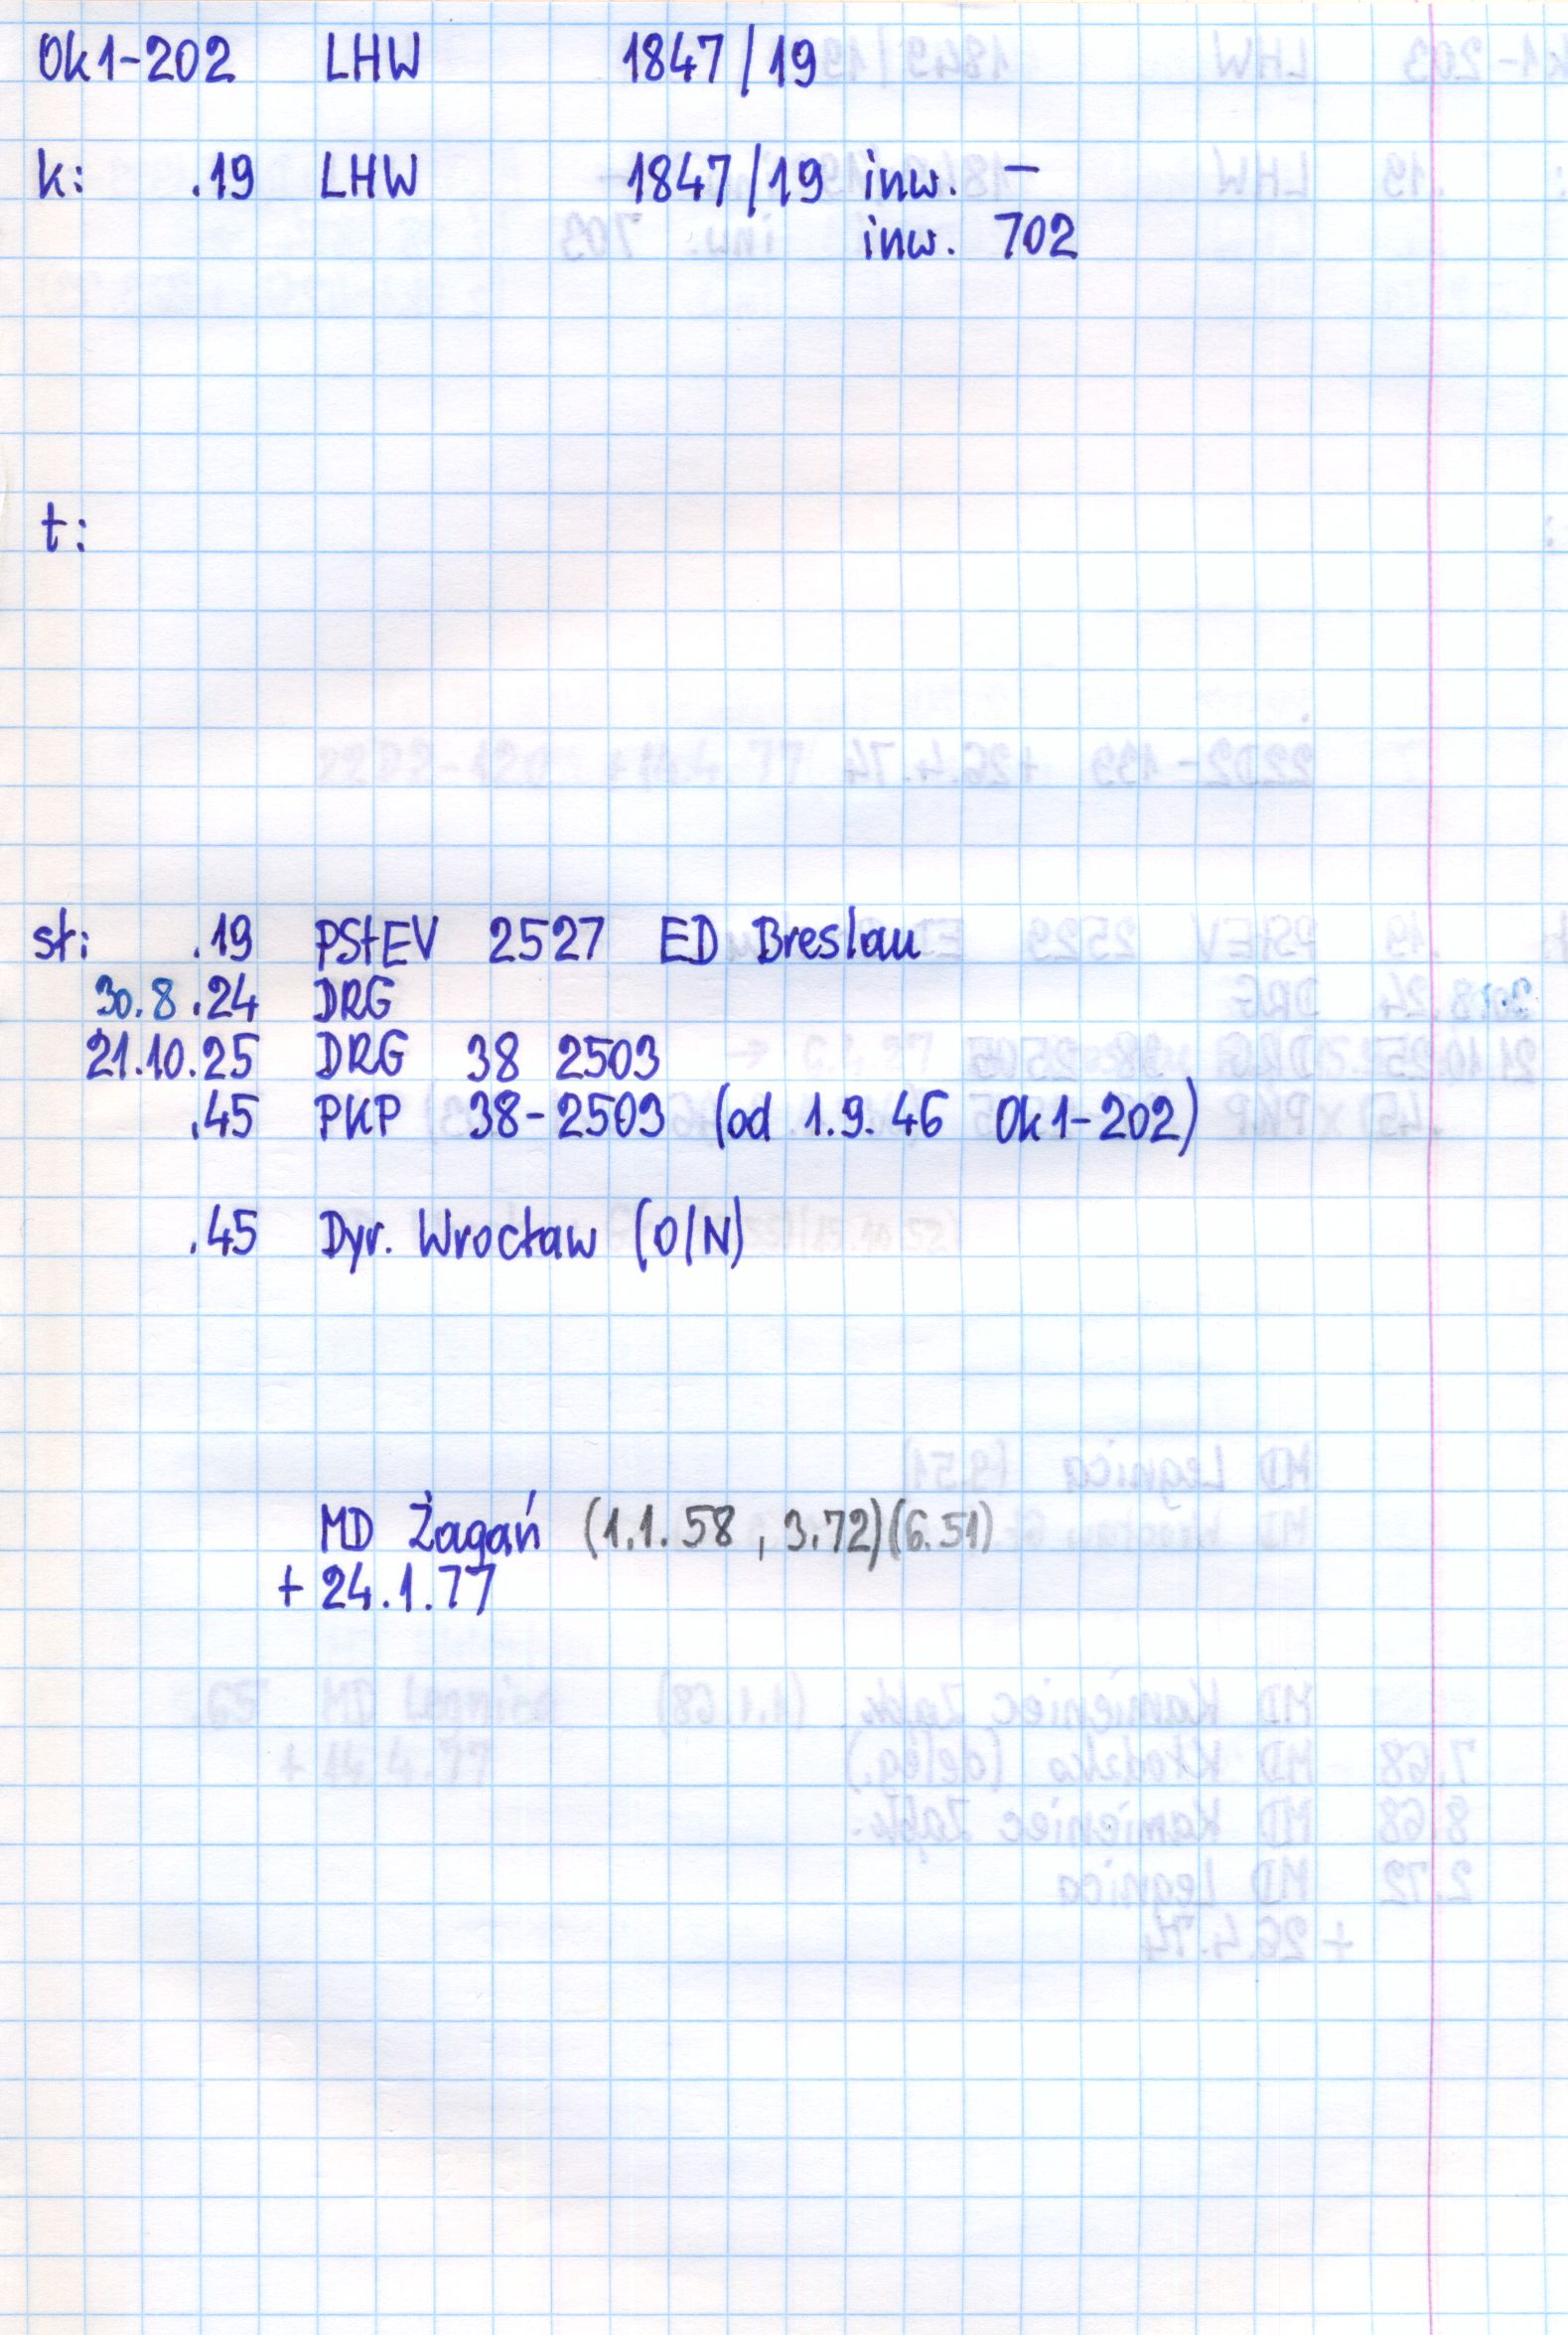 Ok1-202 LHW 1847/19
k: .19 LHW 1847/19 inw. –
inw. 702
t:
st: .19 PStEV 2527 ED Breslau
30.8.24 DRG
21.10.25 DRG 38 2503
.45 PKP 38-2503 (od 1.9.46 Ok1-202)
.45 Dyr. Wrocław (O/N)
MD Żagań (1.1.58, 3.72)(6.51)
+ 24.1.77